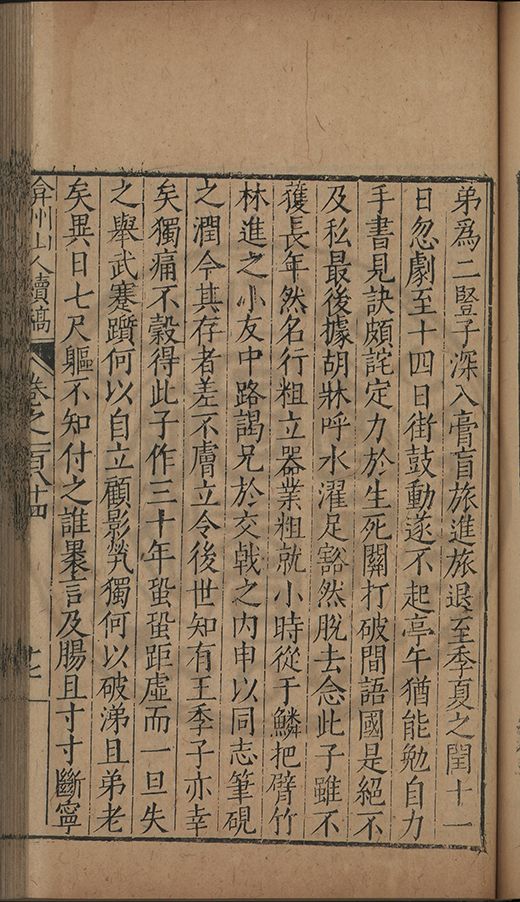 弟為二豎子深入膏肓旅進旅退至季夏之閏十一
日忽劇至十四日街鼓動遂不起亭午猶能勉自力
手書見訣頗詫定力於生死關打破間語國是絕不
及私最後據胡牀呼水濯足豁然脫去念此子雖不
獲長年然名行粗立器業粗就小時從于鱗把臂竹
林進之小友中路謁兄於交戟之内申以同志筆硯
之潤今其存者差不膚立令後世知有王季子亦幸
矣獨痛不穀得此子作三十年蛩蛩距虛而一旦失
之舉武蹇躓何以自立顧影煢獨何以破涕且弟老
矣異日七尺軀不知付之誰曇言及腸且寸寸斷寧
弇州山人續稿 卷之一百八十四 十七